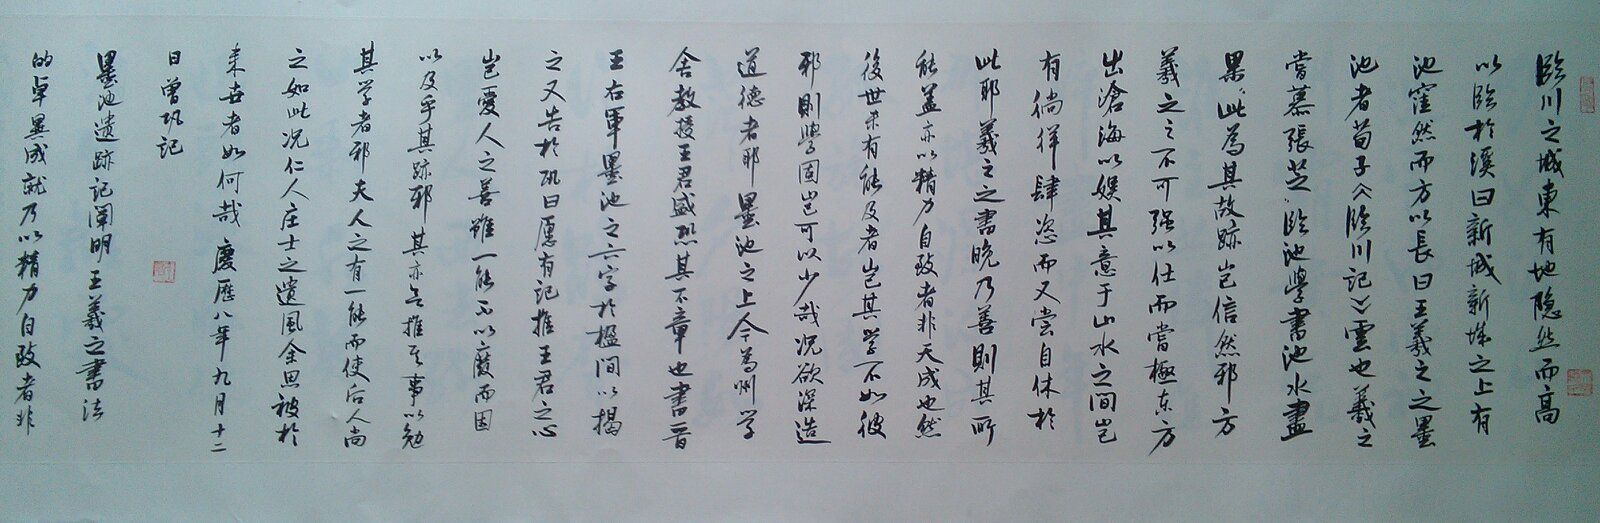 臨川之城東有地隐然而高
以臨於溪曰新城新城之上有
池窪然而方以長曰王羲之之墨
池者荀子《臨川記》雲也羲之
嘗慕張芝臨池學書池水盡
黑此為其故跡岂信然邪方
羲之之不可强以仕而嘗極东方
出滄海以娱其意于山水之间岂
有徜徉肆恣而又尝自休於
此耶羲之之書晚乃善則其所
能蓋亦以精力自致者非天成也然
後世未有能及者岂其学不如彼
邪則學固岂可以少哉况欲深造
道德者耶墨池之上今為州学
舍教授王君盛恐其不章也書晋
王右軍墨池之六字於楹间以揭
之又告於巩曰愿有记推王君之心
岂愛人之善雖一能不以废而因
以及乎其跡邪其亦欲推其事以勉
其学者邪夫人之有一能而使后人尚
之如此况仁人庄士之遺風余思被於
来世者如何哉慶歷八年九月十二
日曾巩记
墨池遺跡記闡明王羲之書法
的卓異成就乃以精力自致者非